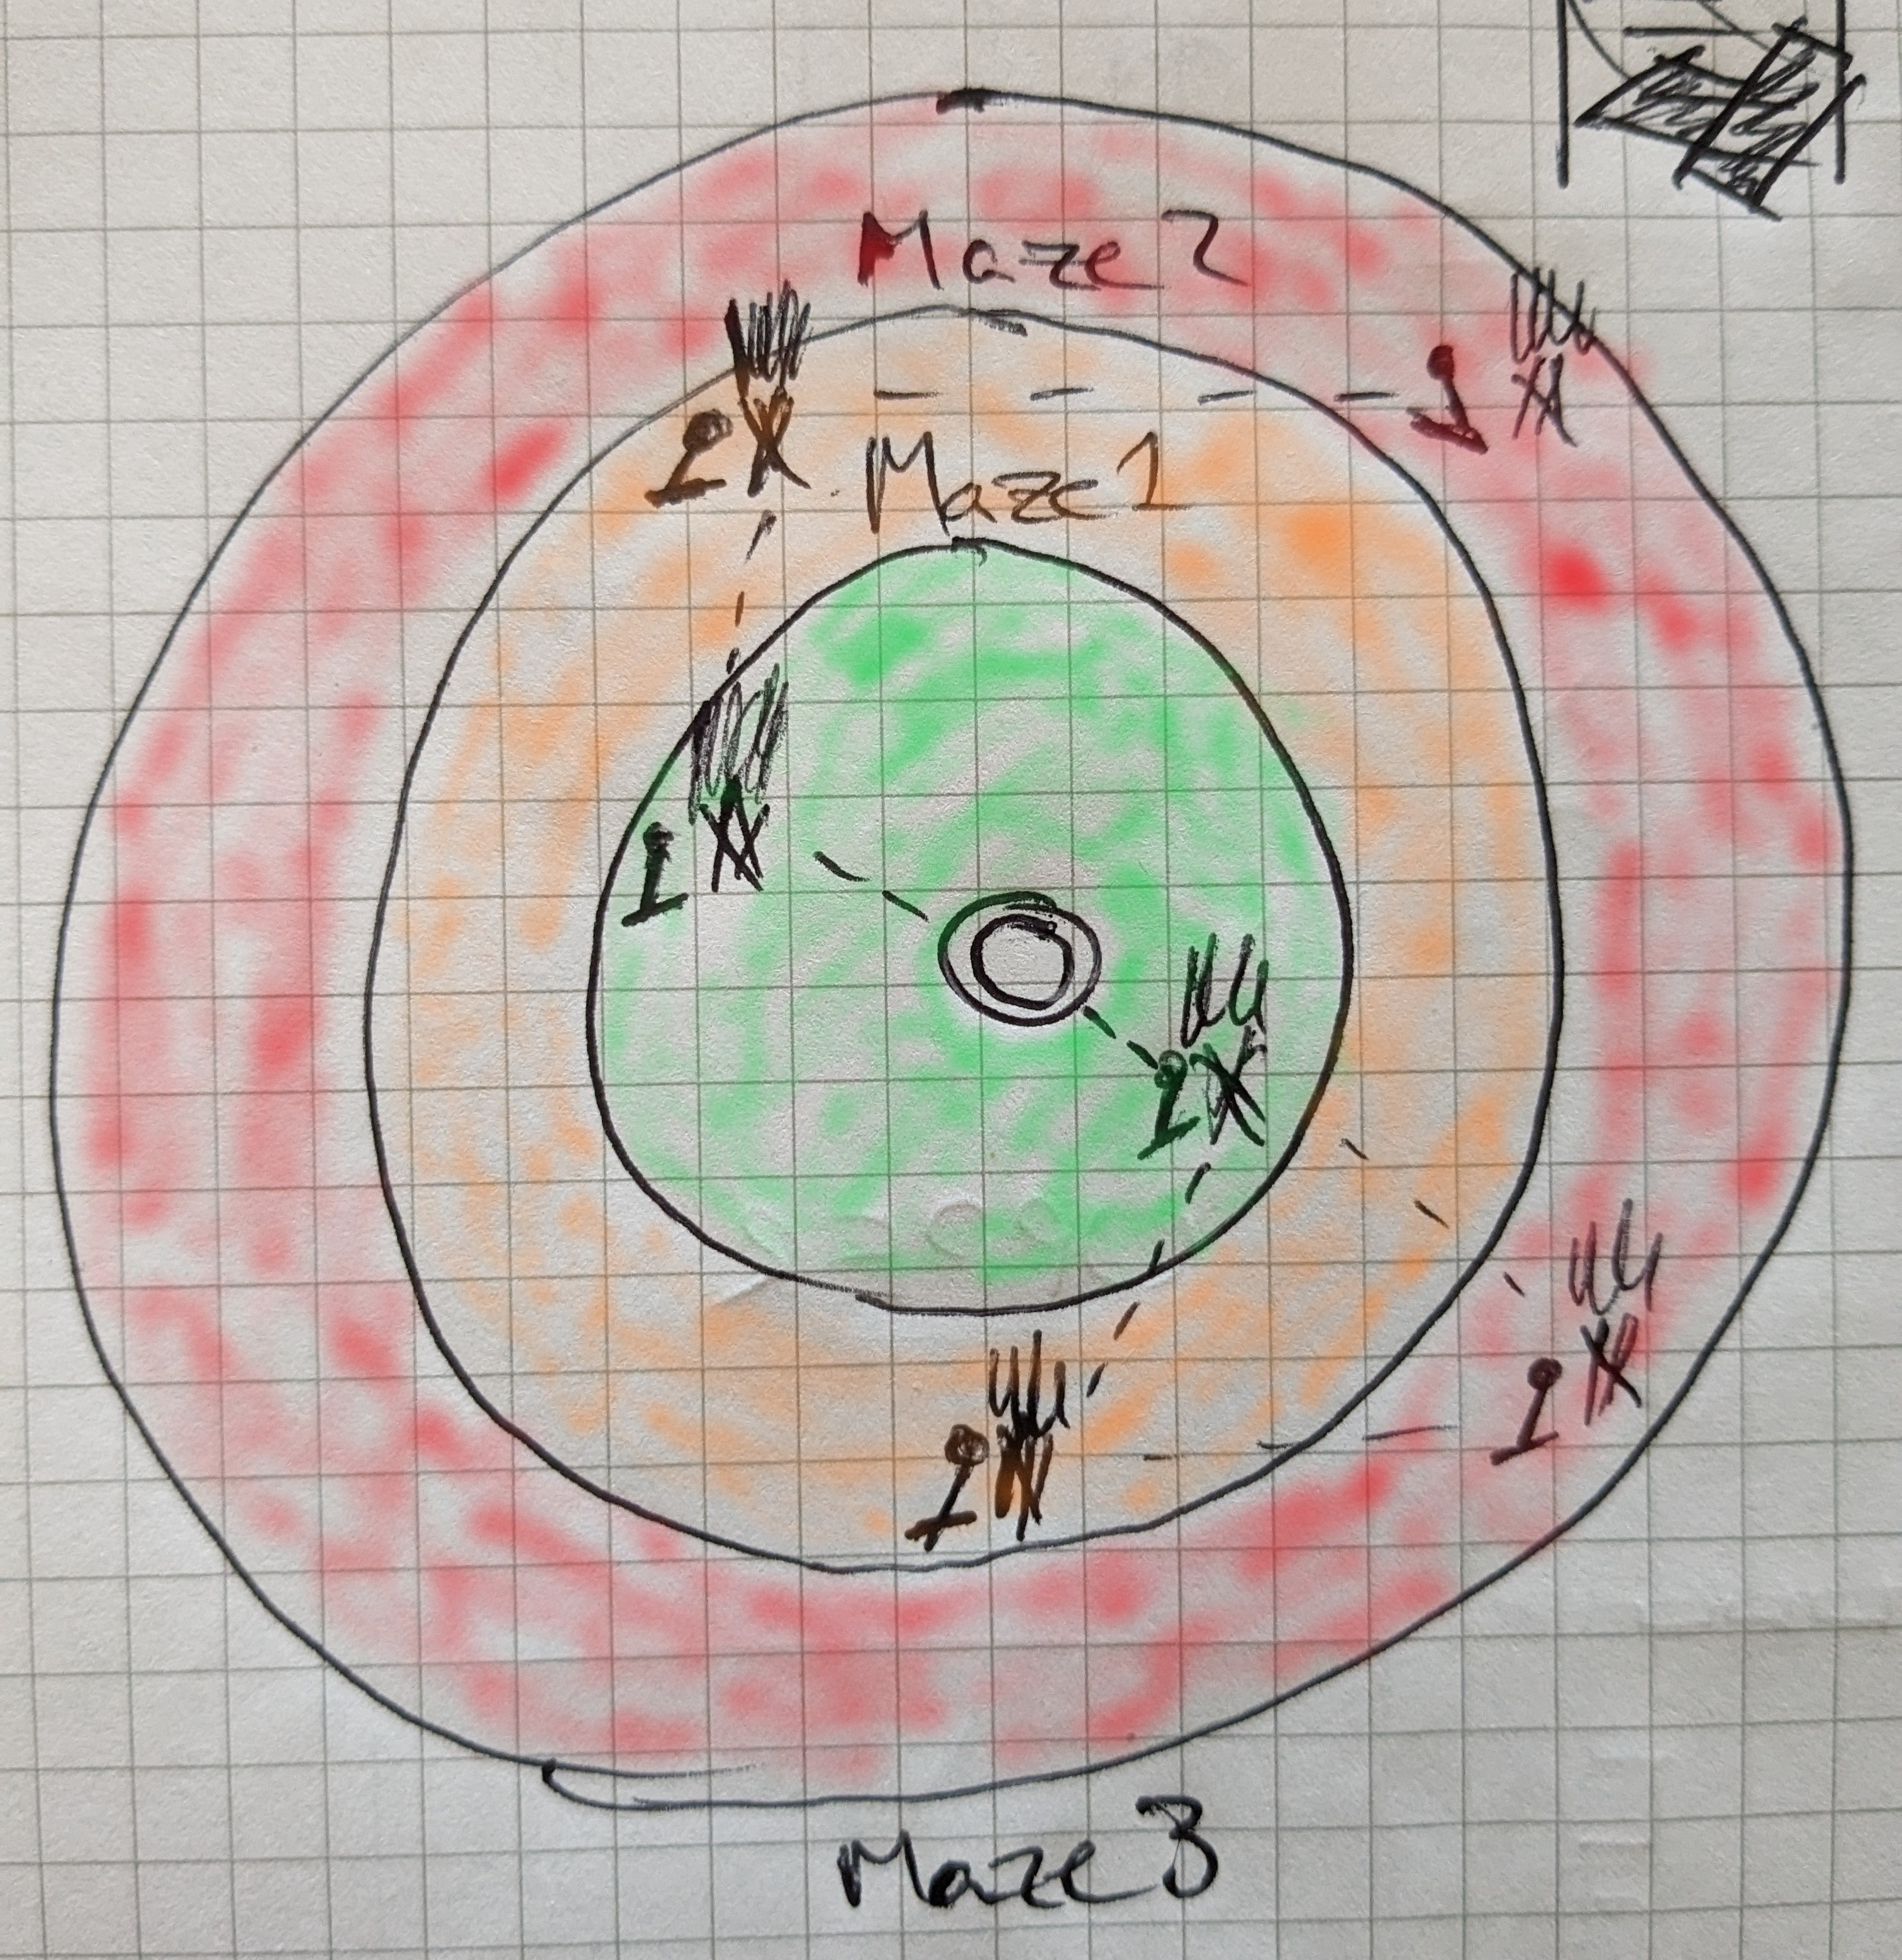 Maze 2
Maze 1
Maze 3